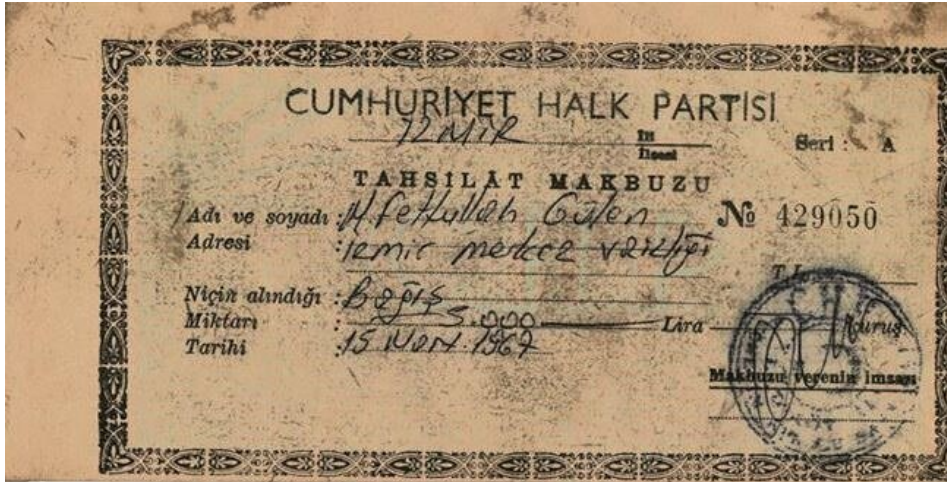 CUMHURİYET HALK PARTİSİ
İZMİR İli
İlcesi
Seri : A
TAHSİLÂT MAKBUZU
Adı ve soyadı : M. Fethullah Gülen № 429050
Adresi : izmir merkez vaizliği
T. L.
Niçin alındığı : Bağış
Miktarı : 5.000 Lira Kuruş
Tarihi : 15 NİSAN 1967
Makbuzu verenin imzası